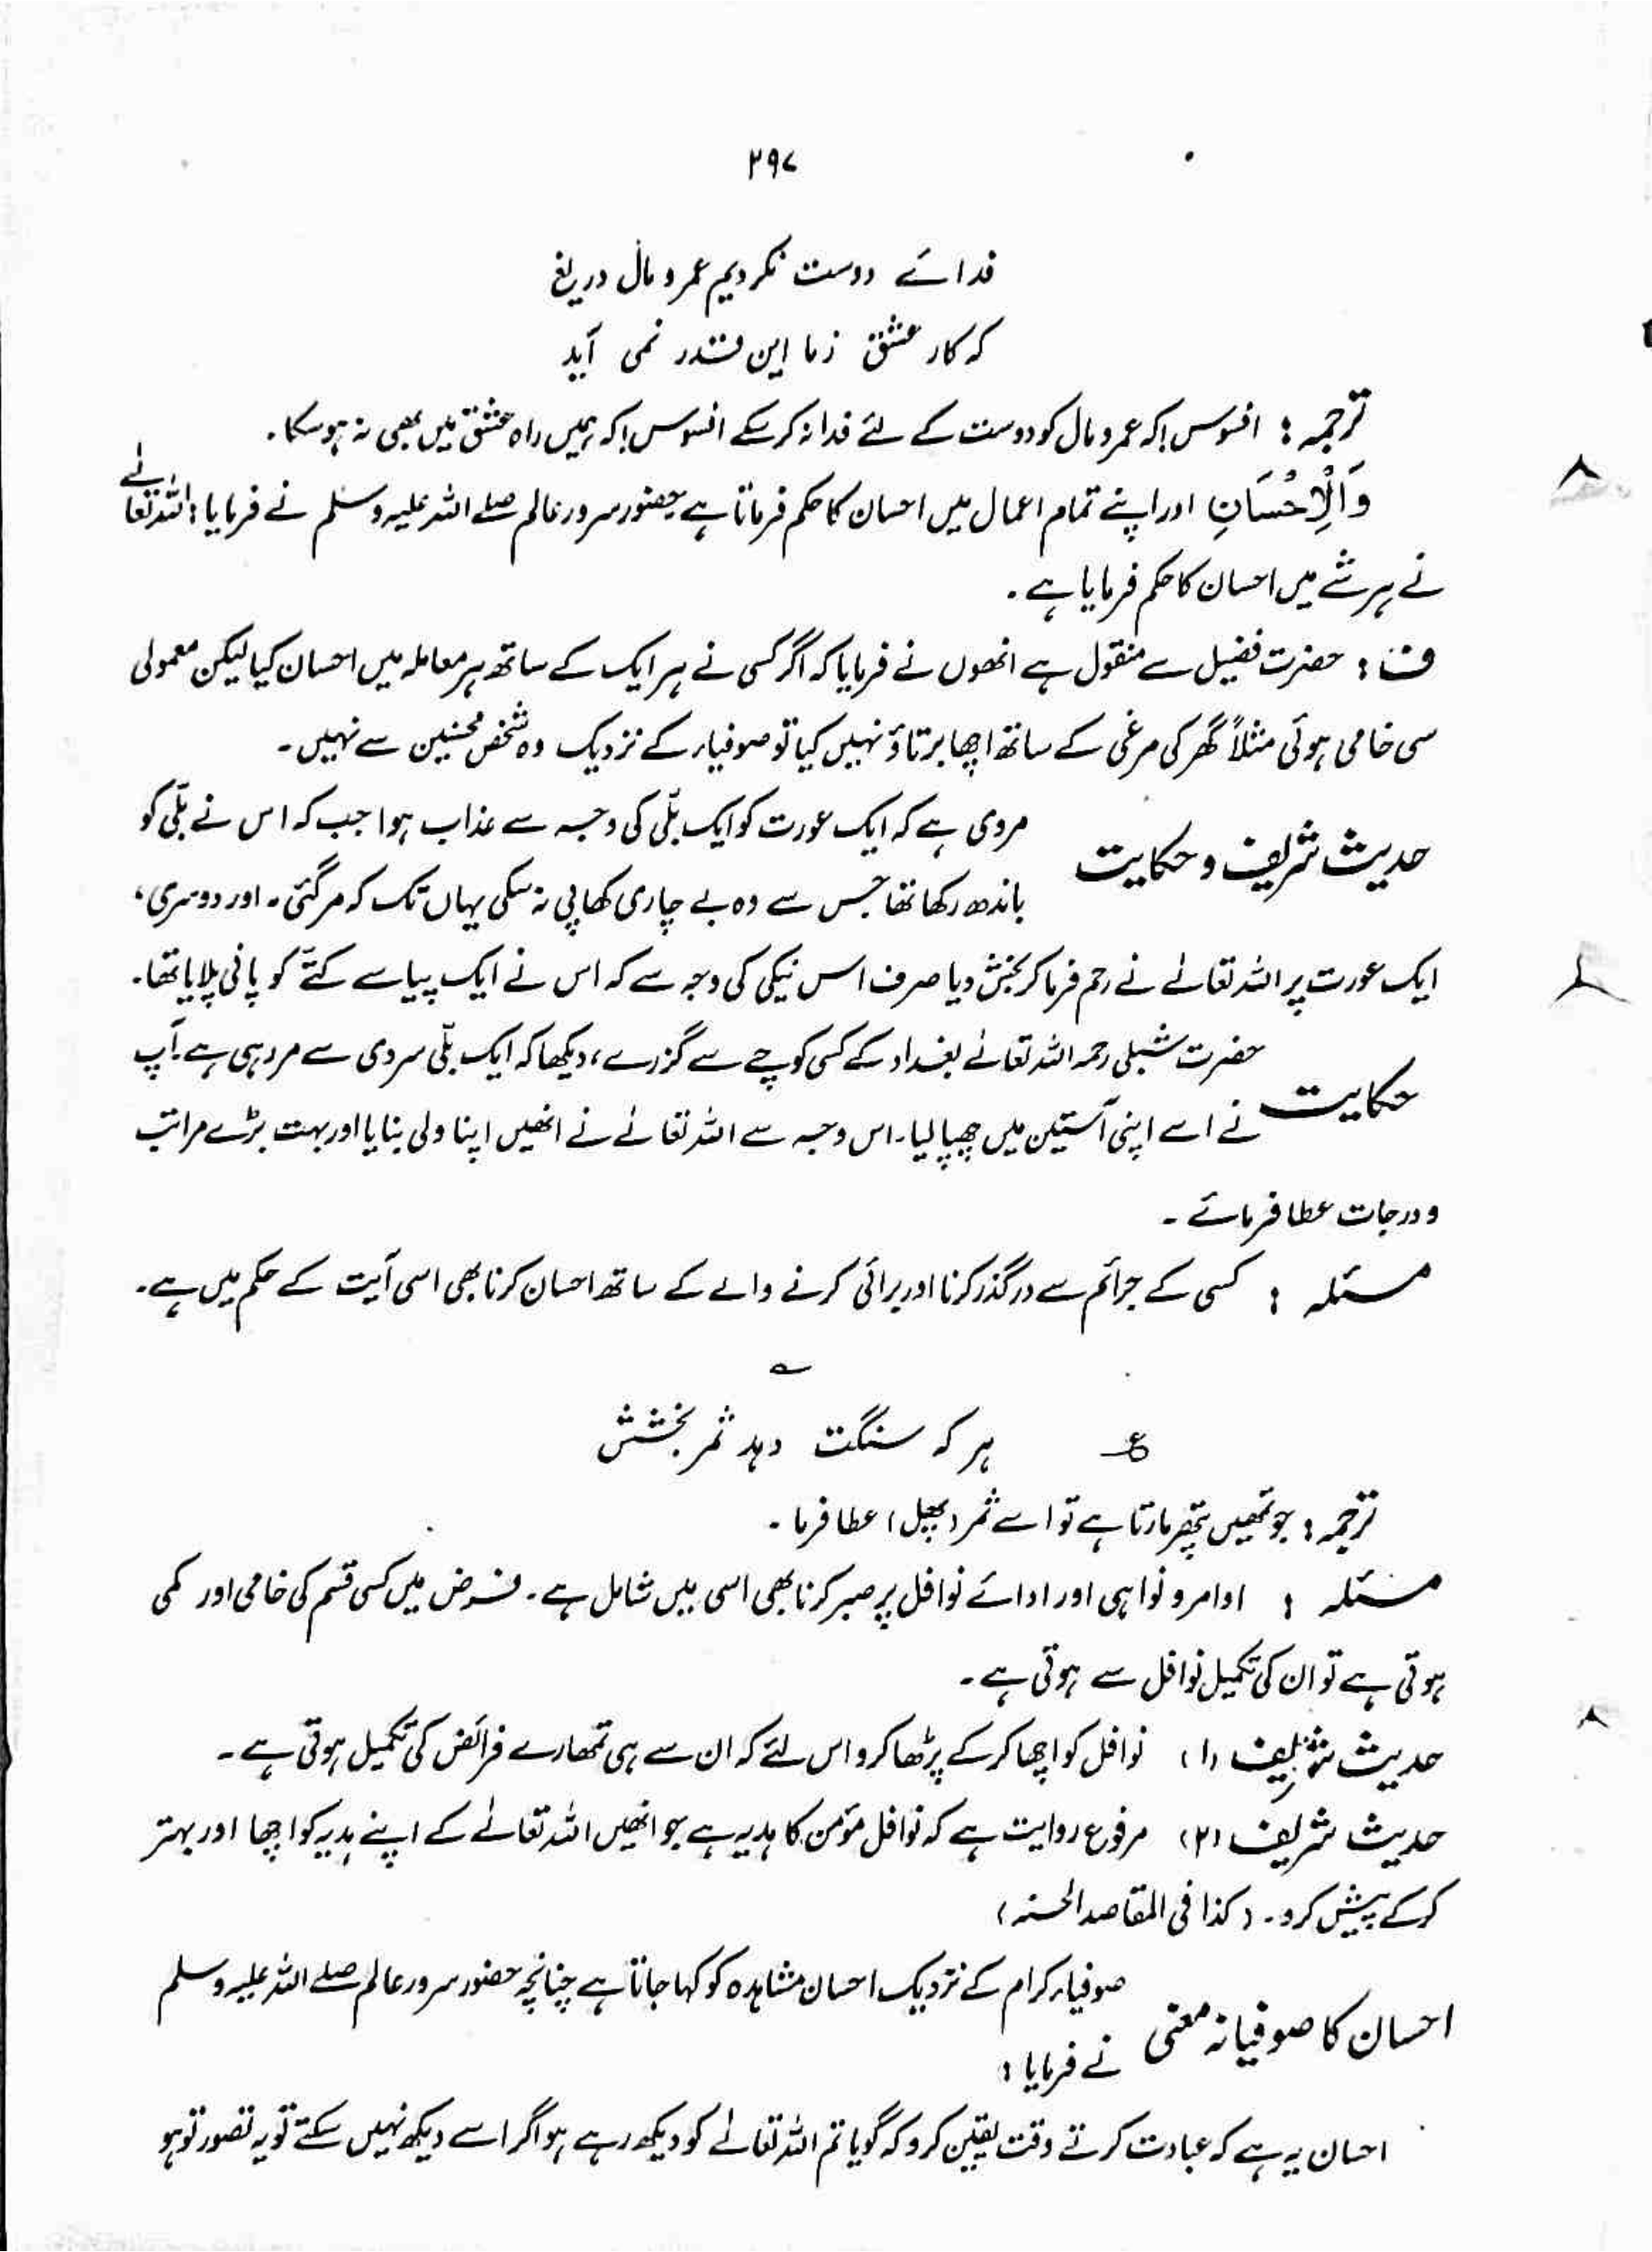 ۲۹۷
فدائے دوست نکردیم عمر و مال دریغ
کہ کار عشق زما این قدر نمی آید
ترجمہ : افسوس! کہ عمر و مال کو دوست کے لئے فدا نہ کرسکے افسوس! کہ ہمیں راہ عشق میں بھی نہ ہوسکا۔
وَالْاِحْسَانِ اور اپنے تمام اعمال میں احسان کا حکم فرماتا ہے حضور سرور عالم صلے اللہ علیہ وسلم نے فرمایا : اللہ تعالےٰ
نے ہر شے میں احسان کا حکم فرمایا ہے۔
ف : حضرت فضیل سے منقول ہے انھوں نے فرمایا کہ اگر کسی نے ہر ایک کے ساتھ ہر معاملہ میں احسان کیا لیکن معمولی
سی خامی ہوئی مثلاً گھر کی مرغی کے ساتھ اچھا برتاؤ نہیں کیا تو صوفیاء کے نزدیک وہ شخص محسنین سے نہیں۔
حدیث شریف و حکایت مروی ہے کہ ایک عورت کو ایک بلّی کی وجہ سے عذاب ہوا جب کہ اس نے بلّی کو
باندھ رکھا تھا جس سے وہ بے چاری کھا پی نہ سکی یہاں تک کہ مرگئی۔ اور دوسری،
ایک عورت پر اللہ تعالےٰ نے رحم فرما کر بخش دیا صرف اس نیکی کی وجہ سے کہ اس نے ایک پیاسے کتّے کو پانی پلایا تھا۔
حکایت حضرت شبلی رحمہ اللہ تعالےٰ بغداد کے کسی کوچے سے گزرے، دیکھا کہ ایک بلّی سردی سے مر رہی ہے۔ آپ
نے اسے اپنی آستین میں چھپا لیا۔ اس وجہ سے اللہ تعالےٰ نے انھیں اپنا ولی بنایا اور بہت بڑے مراتب
و درجات عطا فرمائے۔
مسئلہ : کسی کے جرائم سے درگذر کرنا اور برائی کرنے والے کے ساتھ احسان کرنا بھی اسی آیت کے حکم میں ہے۔
؎
ع ہر کہ سنگت دہد ثمر بخشش
ترجمہ : جو تمھیں پتھر مارتا ہے تو اسے ثمر (پھل) عطا فرما۔
مسئلہ : اوامر و نواہی اور ادائے نوافل پر صبر کرنا بھی اسی میں شامل ہے۔ فرض میں کسی قسم کی خامی اور کمی
ہوتی ہے تو ان کی تکمیل نوافل سے ہوتی ہے۔
حدیث شریف (۱) نوافل کو اچھا کرکے پڑھا کرو اس لئے کہ ان سے ہی تمھارے فرائض کی تکمیل ہوتی ہے۔
حدیث شریف (۲) مرفوع روایت ہے کہ نوافل مؤمن کا ہدیہ ہے جو انھیں اللہ تعالےٰ کے اپنے ہدیہ کو اچھا اور بہتر
کرکے پیش کرو۔ (کذا فی المقاصد الحسنہ)
احسان کا صوفیانہ معنی صوفیاء کرام کے نزدیک احسان مشاہدہ کو کہا جاتا ہے چنانچہ حضور سرور عالم صلے اللہ علیہ وسلم
نے فرمایا :
احسان یہ ہے کہ عبادت کرتے وقت یقین کرو کہ گویا تم اللہ تعالےٰ کو دیکھ رہے ہو اگر اسے دیکھ نہیں سکتے تو یہ تصور تو ہو